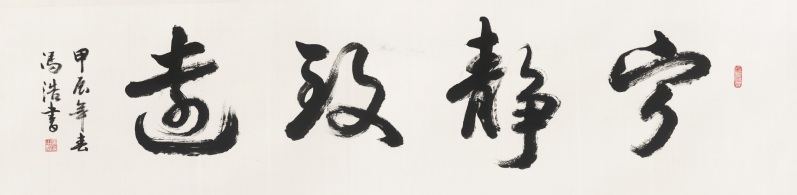 宁静致遠
甲辰年春
冯浩書